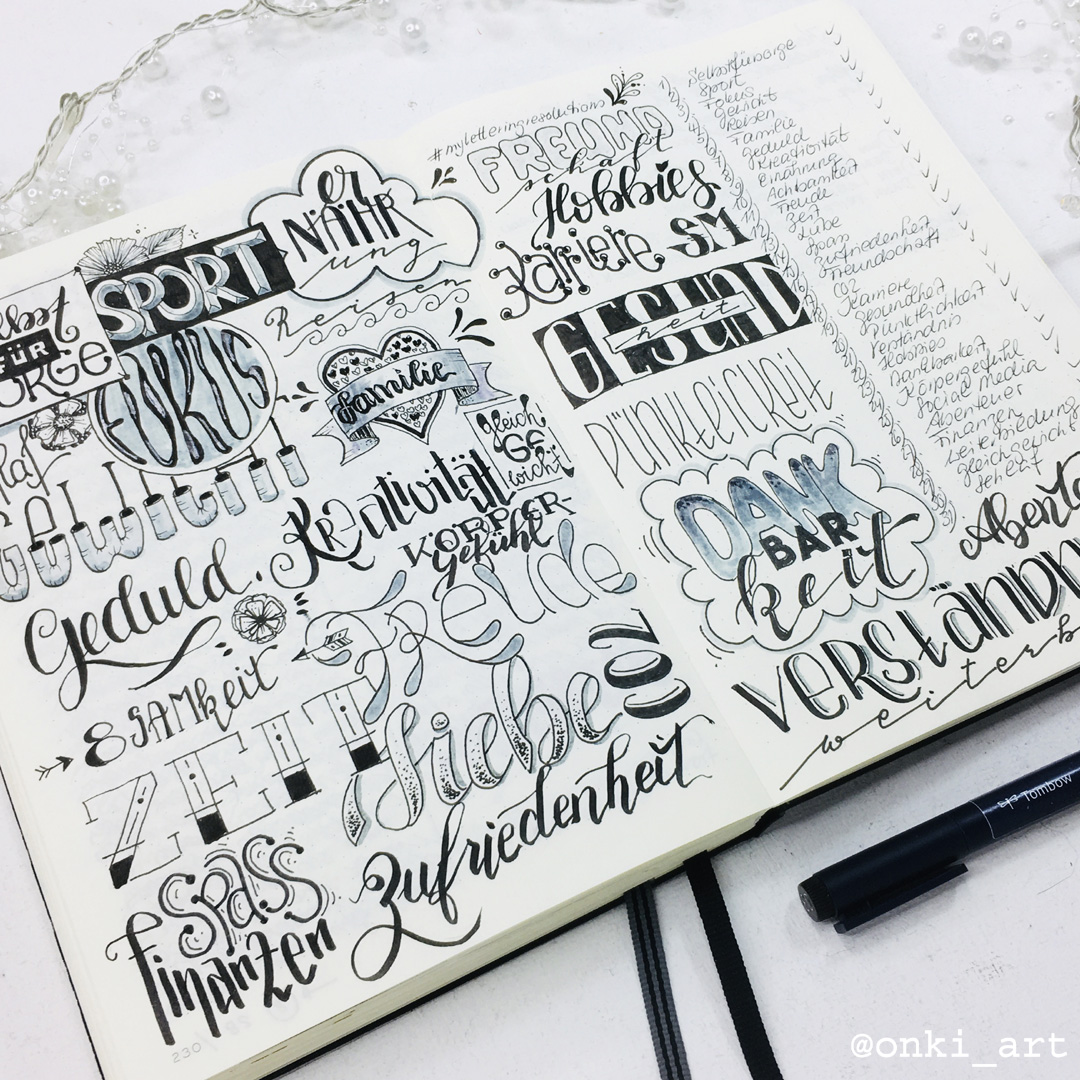 FÜR
SORGE
SPORT
er
NÄHR
ung
Reisen
FOKUS
Familie
Gewicht
Kreativität
gleich
GE
wicht
KÖRPER-
gefühl
Geduld
Freude
SAMKeit
ZEIT
Liebe
CO2
SPASS
Finanzen
Zufriedenheit
230
#myletteringresolutions
FREUND
schaft
Hobbies
Karriere SM
GESUND
heit
PÜNKTLICHKEIT
DANK
BAR
keit
Abente
VERSTÄNDN
weiterb
Selbstfürsorge
Sport
Fokus
Gewicht
Reisen
Familie
Geduld
Kreativität
Ernährung
Achtsamkeit
Freude
Zeit
Liebe
Spass
Zufriedenheit
Freundschaft
CO2
Karriere
Gesundheit
Pünktlichkeit
Verständnis
Hobbies
Dankbarkeit
Körpergefühl
Social Media
Abenteuer
Finanzen
Weiterbildung
Gleichgewicht
Schlaf
Tombow
@onki_art